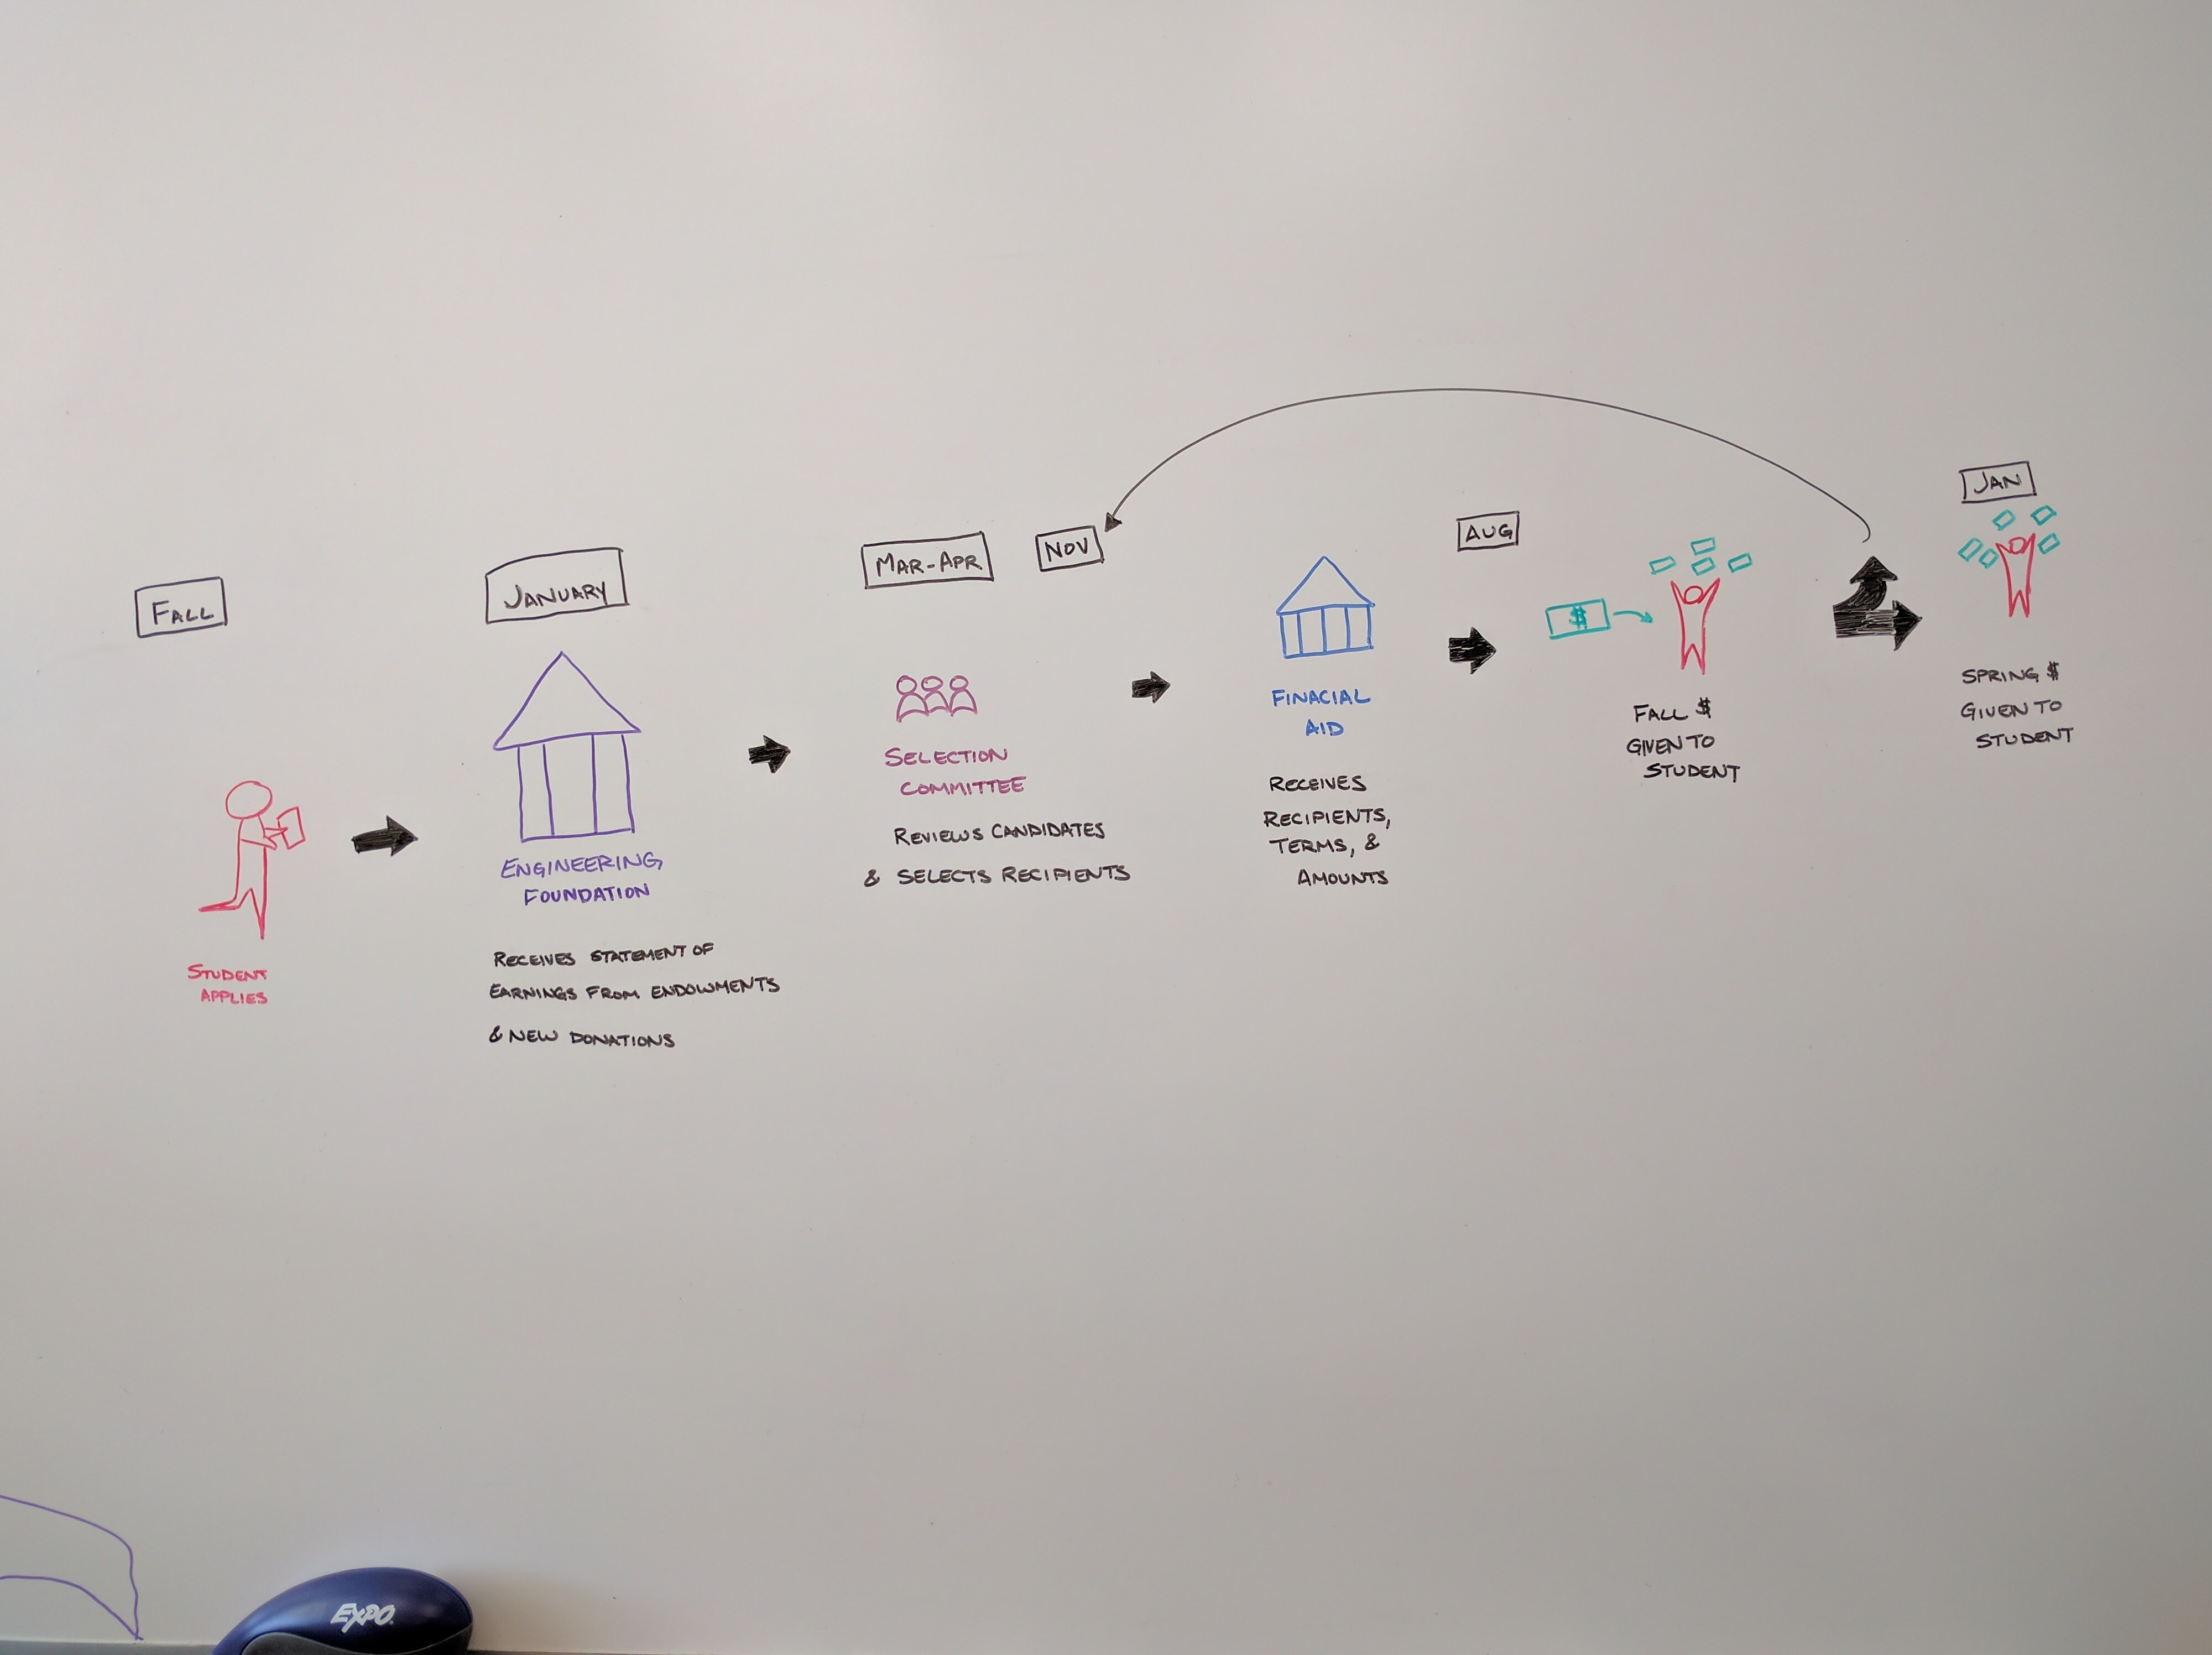 FALL
STUDENT
APPLIES
JANUARY
ENGINEERING
FOUNDATION
RECEIVES STATEMENT OF
EARNINGS FROM ENDOWMENTS
& NEW DONATIONS
MAR-APR
NOV
SELECTION
COMMITTEE
REVIEWS CANDIDATES
& SELECTS RECIPIENTS
FINACIAL
AID
RECEIVES
RECIPIENTS,
TERMS, &
AMOUNTS
AUG
$
FALL $
GIVEN TO
STUDENT
JAN
SPRING $
GIVEN TO
STUDENT
EXPO